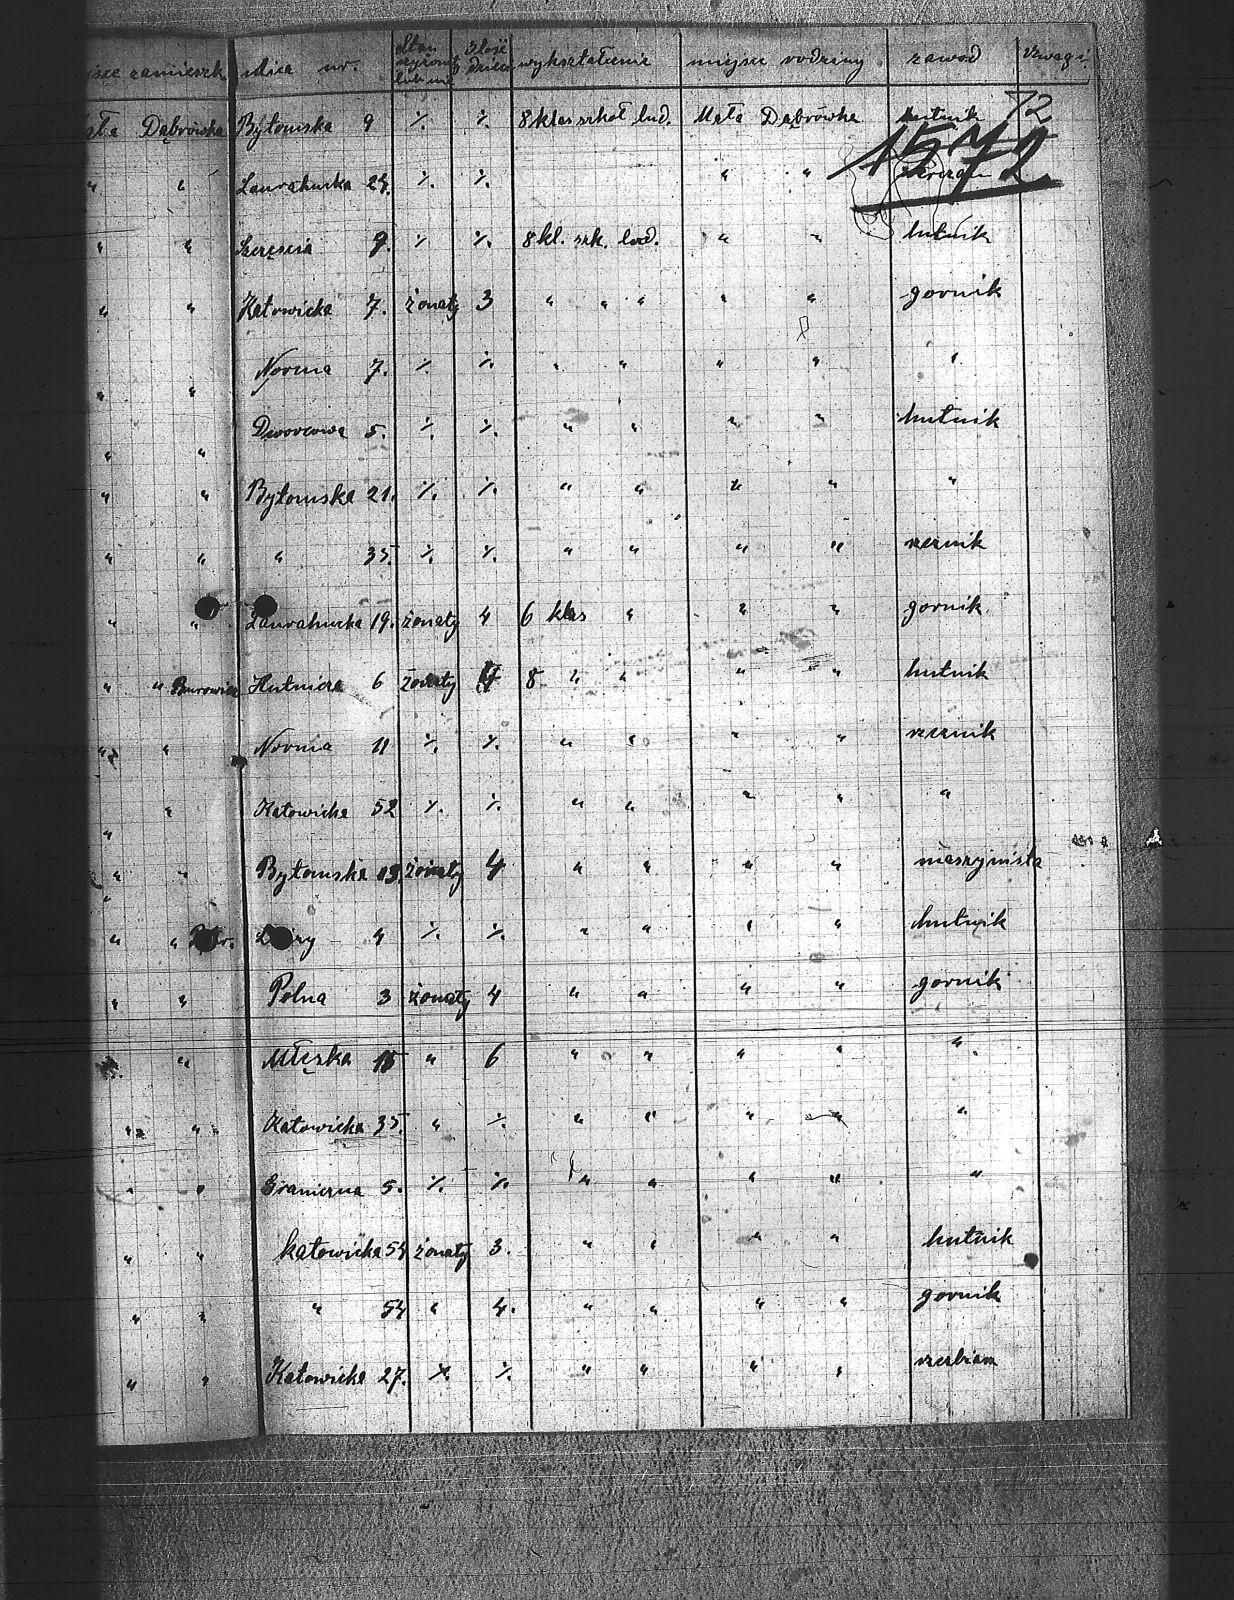 zamieszk. ulica nr. Stan lub nie Ilość dzieci wykształcenie miejsce rodziny zawód Uwagi
72
Dąbrówka Bytomska 9 ./. ./. 8 klas szkoł lud. Mała Dąbrówka hutnik
1572
" " Laurahucka 24. ./. ./. " "
" " Szczęścia 9. ./. ./. 8 kl. szk. lud. " " hutnik
" " Katowicka 7. żonaty 3 " " " " " gornik
" " Norma 7. ./. ./. " " " " "
" " Dworcowa 5. ./. ./. " " " " hutnik
" " Bytomska 21. ./. ./. " " " " "
" " " 35. ./. ./. " " " " rzeznik
" " Laurahucka 19. żonaty 4 6 klas " " " gornik
" " Burowiec Hutnicza 6 żonaty 4 8 " " " " hutnik
" " Norma 11 ./. ./. " " " " rzeznik
" " Katowicka 52 ./. ./. " " " " "
" " Bytomska 13. żonaty 4 " " " " maszynista
" " 4 ./. ./. " " " " hutnik
" " Polna 3 żonaty 4 " " " " gornik
" " 15 " 6 " " " " "
" " Katowicka 35. " ./. " " " " "
" " Graniczna 5. ./. ./. " " " " "
" " Katowicka 54 żonaty 3. " " " " hutnik
" " " 54 " 4. " " " " gornik
" " Katowicka 27. ./. ./. " " " "